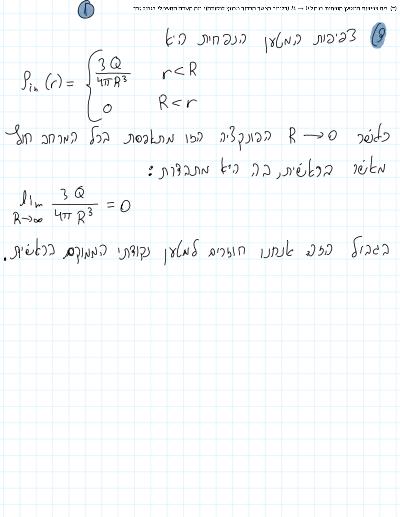 צפיפות המטען הנפחית היא
ρᵢₙ(r) = { 3Q / 4πR³   r < R
0   R < r
כאשר R → 0 הפונקציה הזו מתאפסת בכל המרחב חוץ
מאשר בראשית, בה היא מתבדרת:
lim R→∞ 3Q / 4πR³ = 0
בגבול הזה אנחנו חוזרים למטען נקודתי הממוקם בראשית.